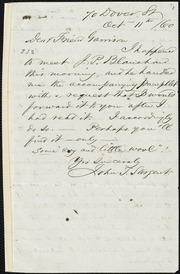 70 Dover St.
Oct 11th /60
Dear Friend Garrison
I happened
to meet J. P. Blanchard
this morning, and he handed
me the accompanying pamphlet
with a request that I would
forward it to you after I
had read it. I accordingly
do so. Perhaps you'll
find it only —
Some "cry and little wool"!
Yrs Sincerely
John T. Sargent